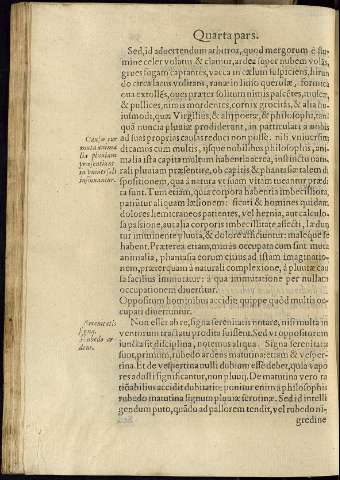 Quarta pars.
Sed, id aduertendum arbitror, quod mergorum è flu-
mine celer volatus & clamor, ardea super nubem volãs,
grues fugam captantes, vacca in cœlum suspiciens, hirun
do circa lacus volitans, ranæ in limo querulæ, formica
oua extollẽs, oues præter solitum nimis pascẽtes, muscæ,
& pullices, nimis mordentes, cornix grocitãs, & alia hu-
iusmodi, quæ Virgilius, & alij poetæ, & philosophi, tan
quã nuncia pluuiæ prodiderunt, in particulari à nobis
ad suas proprias causas reduci non posse: nisi vniuersim
dicamus cum multis, ijsque nobilibus philosophis, ani-
malia ista capita multum habentia aerea, instinctu natu-
rali pluuiam præsentire, ob capitis & phantasiæ talem di
spositionem, quæ à natura vt suam vitam tueantur prædi
ta sunt. Tum etiam, quia corpora habentia imbecilliora,
patiũtur aliquam læsionem: sicuti & homines quidam,
dolores hemicraneos patientes, vel hernia, aut calculo-
sa passione, aut alia corporis imbecillitate affecti, lædun
tur imminente pluuia, & dolore afficiuntur: maleque se
habent. Præterea etiam, minùs occupata cum sint muta
animalia, phantasia eorum citius ad istam imaginatio-
nem, præterquam à naturali complexione, à pluuiæ cau
sa facilius immutatur: à qua immutatione per nullam
occupationem diuertitur.
Oppositum hominibus accidit, quippe quòd multis oc-
cupati diuertuntur.
Non esset ab re, signa serenitatis notare, nisi multa in
ventorum tractatu prodita fuissent. Sed vt oppositorem
iuncta sit disciplina, notemus aliqua. Signa serenitatis
sunt, primum, rubedo ardens matutina: etiam & vesper-
tina. Et de vespertina nulli dubium esse debet, quia vapo
res adusti significantur, non pluuij. De matutina verò ra
tiõabilius accidit dubitatio: ponitur enim à philosophis
rubedo matutina signum pluuiæ serotinæ. Sed id intelli
gendum puto, quãdo ad pallorem tendit, vel rubedo ni-
gredine
Causæ cur
muta anima
lia pluuiam
præsentiant
Rubedo ar
dens.